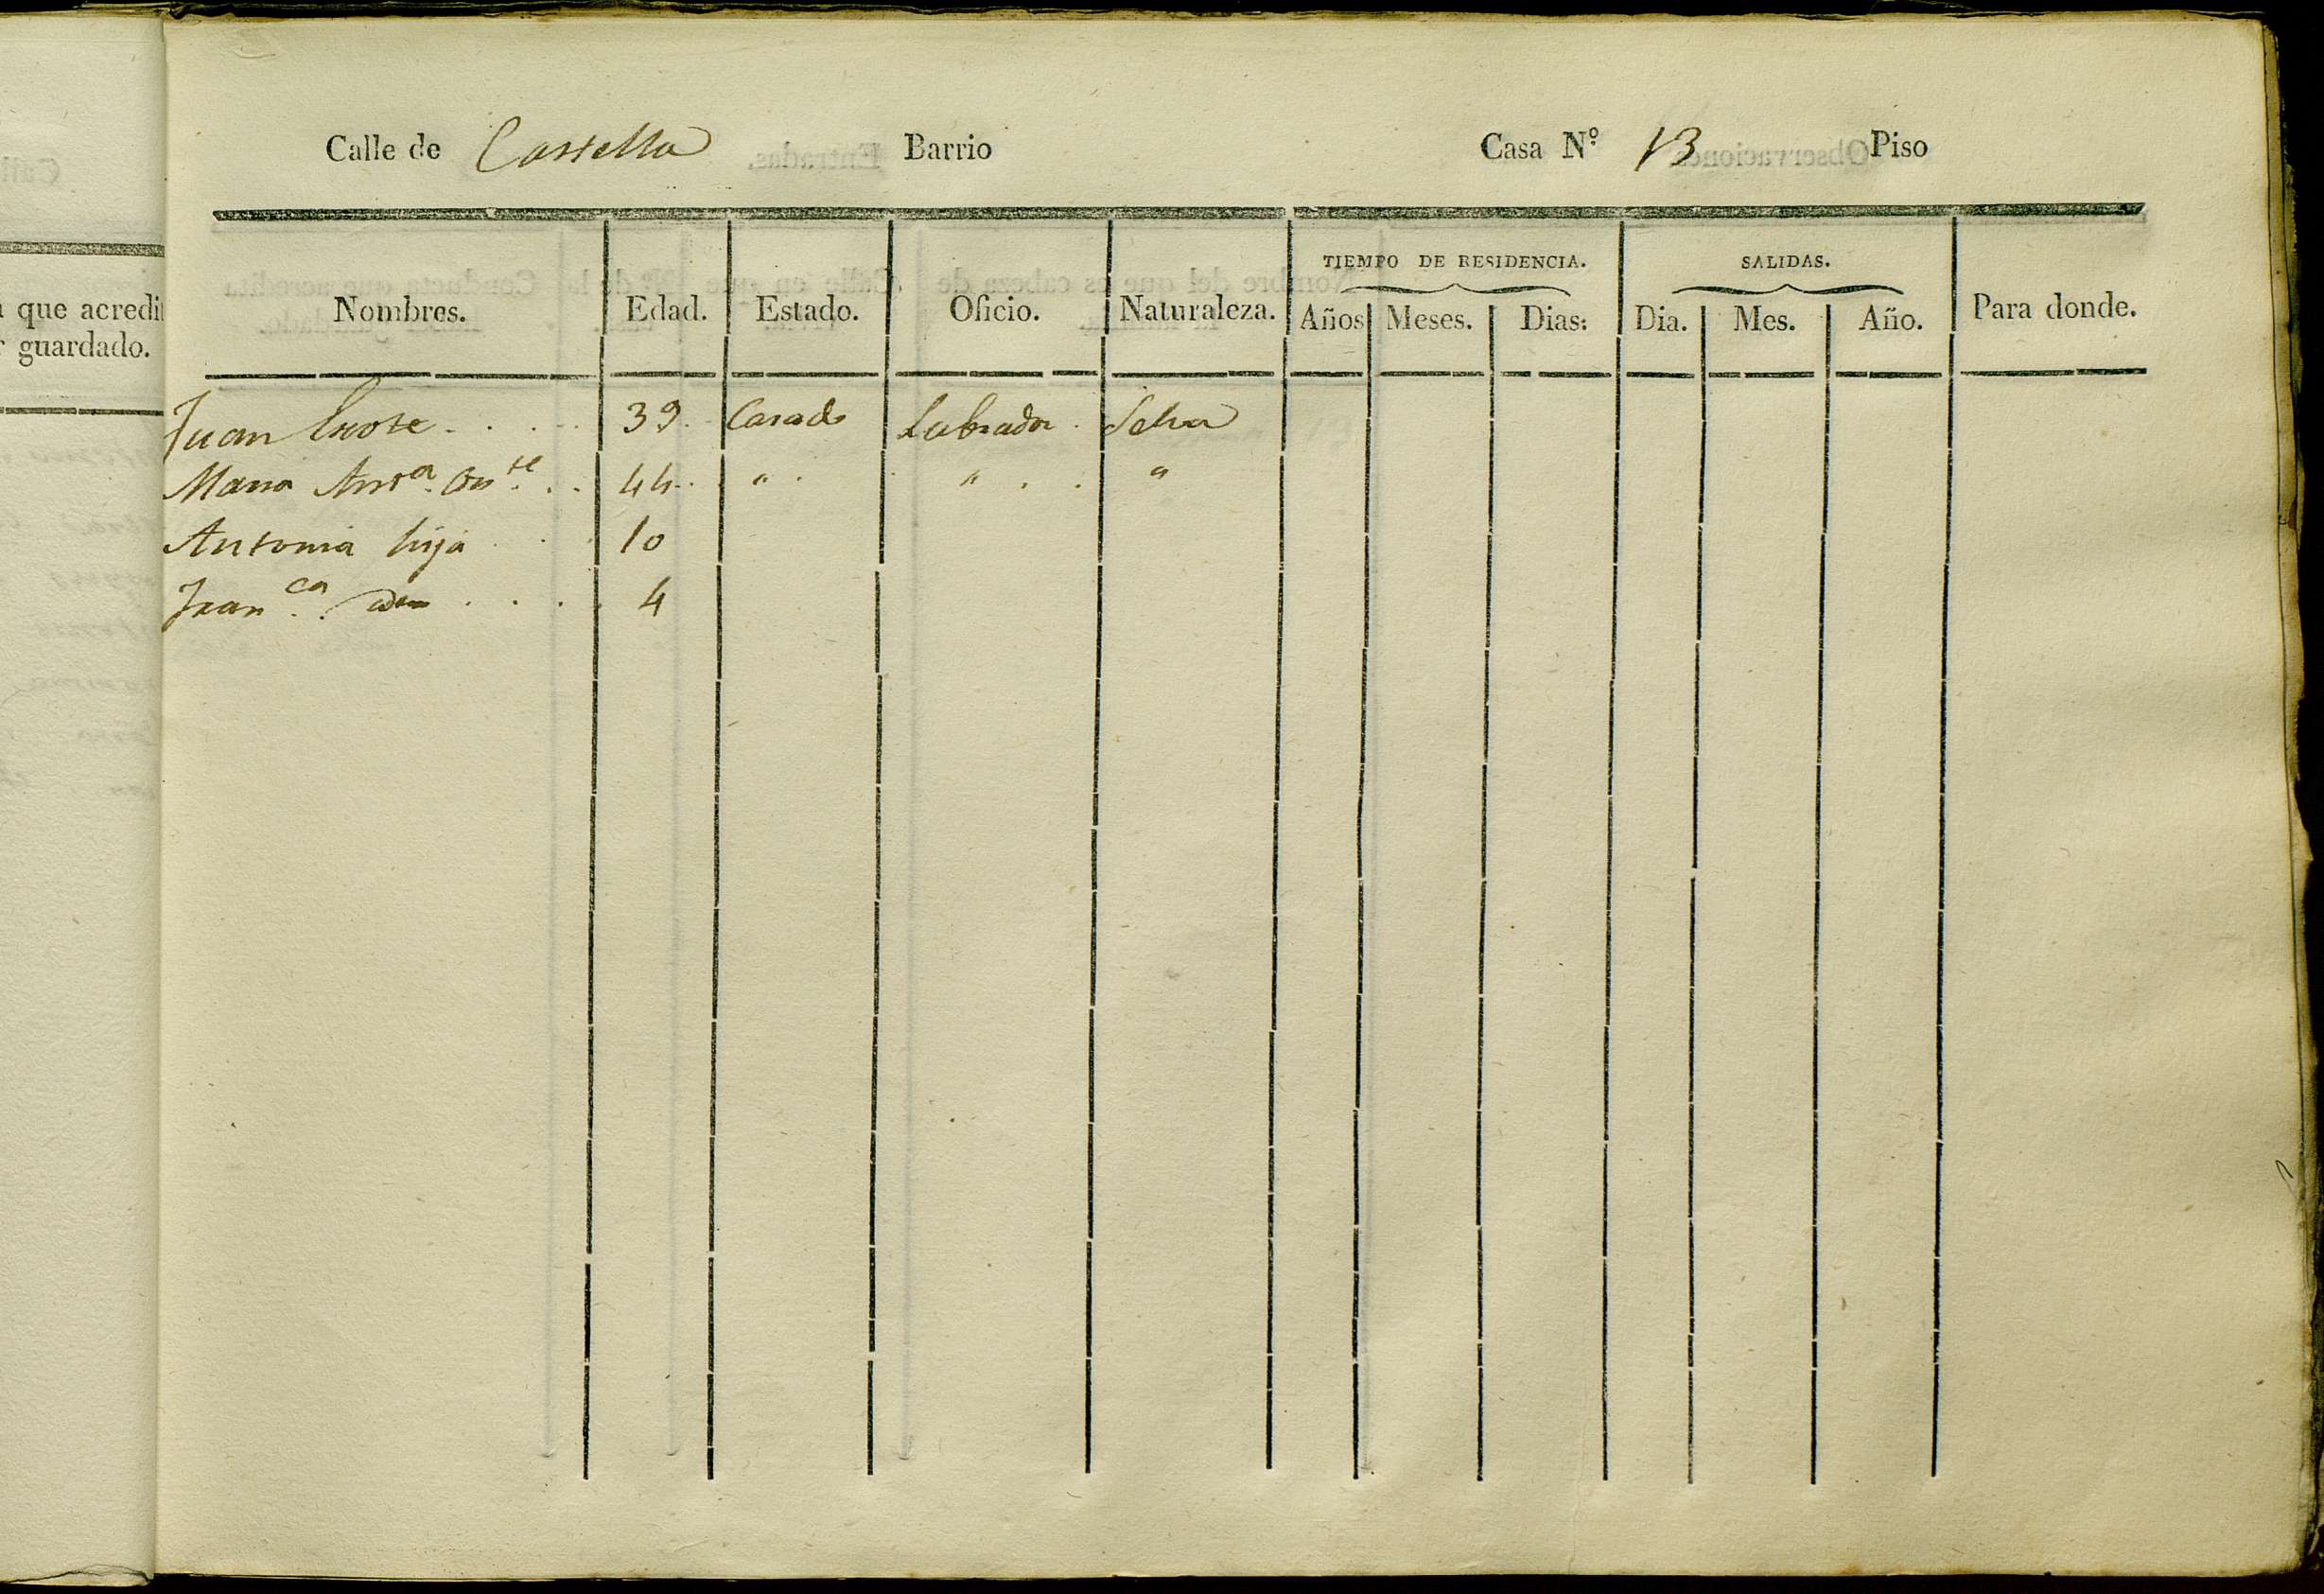 Calle de Castella Barrio Casa Nº 13 Piso
que acredi
guardado.
TIEMPO DE RESIDENCIA. SALIDAS.
Nombres. Edad. Estado. Oficio. Naturaleza. Años Meses. Dias: Dia. Mes. Año. Para donde.
Juan 39. Casado Labrador. Selva
Maria Antª. 44. " " "
Antonia hija 10
Franca. Idem 4